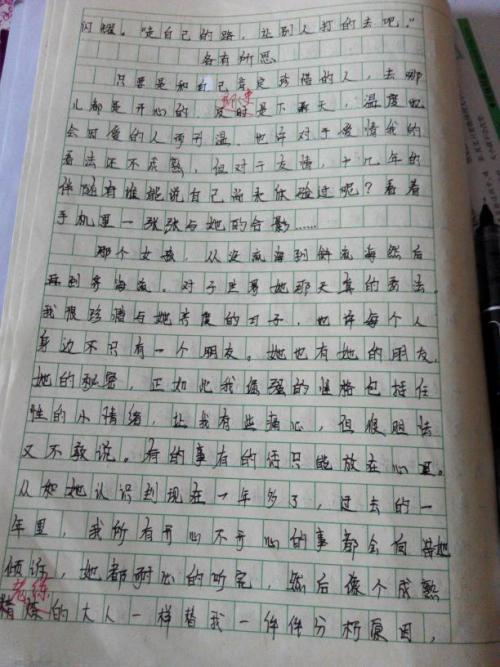 闪耀。“走自己的路，让别人打的去吧。”
各有所思
只要是和自己肯定珍惜的人，去哪
儿都是开心的，即使是下雨天，温度也
会因爱的人而升温。也许对于爱情我的
看法还不成熟，但对于友情，十几年的
伴随有谁能说自己尚未体验过呢？看着
手机里一张张与她的合影……
那个女孩，从沙宣海到
再到秀海发。对于世界她那天真的看法。
我很珍惜与她共度的日子，也许每个人
身边不只有一个朋友。她也有她的朋友，
她的秘密，正如她我倔强的性格包括任
性的小情绪，让我有些痛心，但很胆怯
又不敢说。有的事有的话只能放在心里。
从和她认识到现在一年多了，过去的一
年里，我所有开心不开心的事都会向她
倾诉，她都耐心的听完 然后像个成熟
老练
精炼的大人一样替我一件件分析原因，